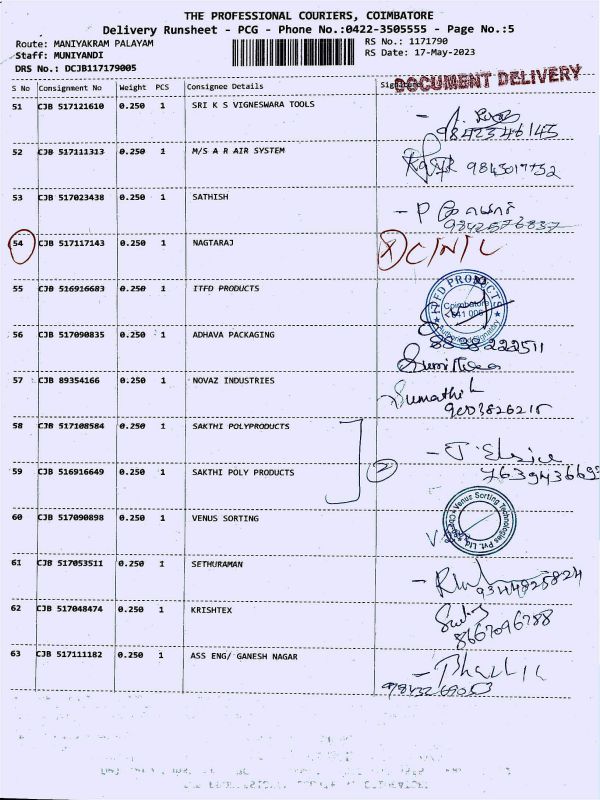 THE PROFESSIONAL COURIERS, COIMBATORE
Delivery Runsheet - PCG - Phone No.:0422-3505555 - Page No.:5
Route: MANIYAKRAM PALAYAM RS No.: 1171790
Staff: MUNIYANDI RS Date: 17-May-2023
DRS No.: DCJB117179005
DOCUMENT DELIVERY
S No Consignment No Weight PCS Consignee Details
51 CJB 517121610 0.250 1 SRI K S VIGNESWARA TOOLS
9842346145
52 CJB 517111313 0.250 1 M/S A R AIR SYSTEM
53 CJB 517023438 0.250 1 SATHISH
9842576837
54 CJB 517117143 0.250 1 NAGTARAJ
C/N/L
55 CJB 516916683 0.250 1 ITFD PRODUCTS
ITFD PRODUCTS
Coimbatore
56 CJB 517090835 0.250 1 ADHAVA PACKAGING
8838222511
57 CJB 89354166 0.250 1 NOVAZ INDUSTRIES
Sumathi
58 CJB 517108584 0.250 1 SAKTHI POLYPRODUCTS
59 CJB 516916649 0.250 1 SAKTHI POLY PRODUCTS
2
60 CJB 517090898 0.250 1 VENUS SORTING
Venus Sorting Technologies Pvt. Ltd.
61 CJB 517053511 0.250 1 SETHURAMAN
9344825824
62 CJB 517048474 0.250 1 KRISHTEX
8667096788
63 CJB 517111182 0.250 1 ASS ENG/ GANESH NAGAR